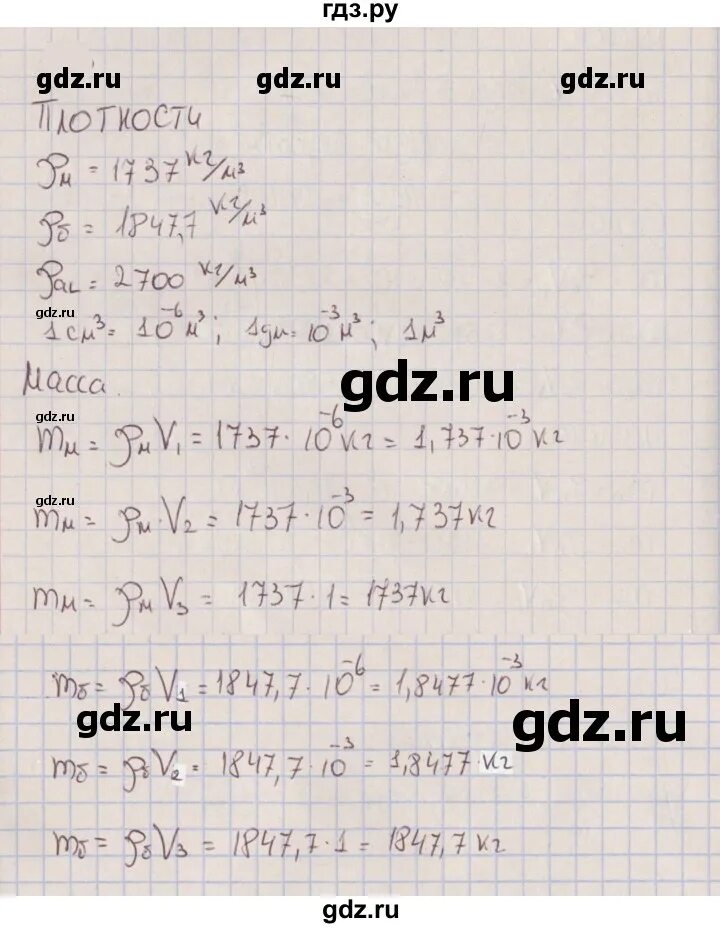 гдз.ру
gdz.ru gdz.ru gdz.ru
Плотности
ρм = 1737 кг/м³
ρб = 1847,7 кг/м³
ρал = 2700 кг/м³
gdz.ru
1см³ = 10⁻⁶ м³; 1дм = 10⁻³ м³; 1м³
Масса.
gdz.ru
gdz.ru
mм = ρмV₁ = 1737·10⁻⁶ кг = 1,737·10⁻³ кг
gdz.ru
mм = ρм·V₂ = 1737·10⁻³ = 1,737кг
mм = ρмV₃ = 1737·1 = 1737кг
mб = ρбV₁ = 1847,7·10⁻⁶ = 1,8477·10⁻³ кг
gdz.ru gdz.ru
mб = ρбV₂ = 1847,7·10⁻³ = 1,8477 кг
mб = ρбV₃ = 1847,7·1 = 1847,7 кг
gdz.ru